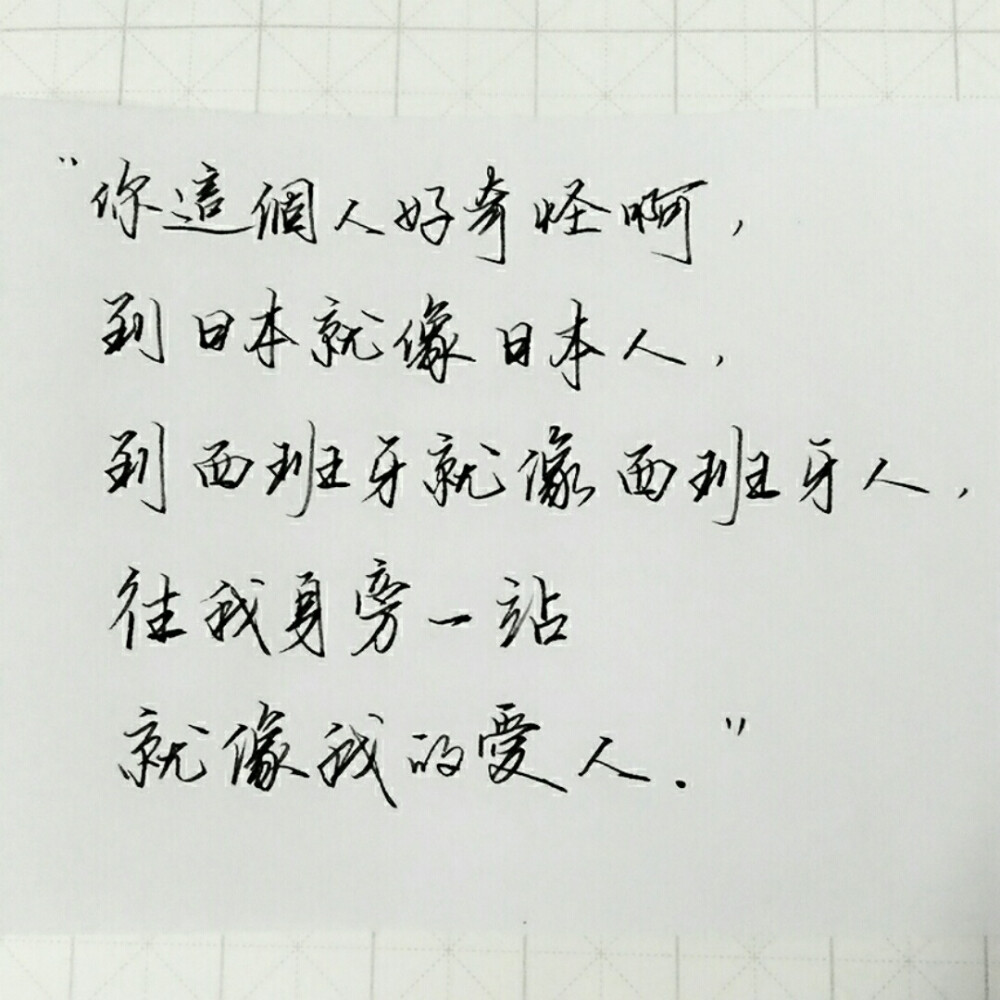 "你這個人好奇怪啊,
到日本就像日本人,
到西班牙就像西班牙人,
往我身旁一站
就像我的愛人."